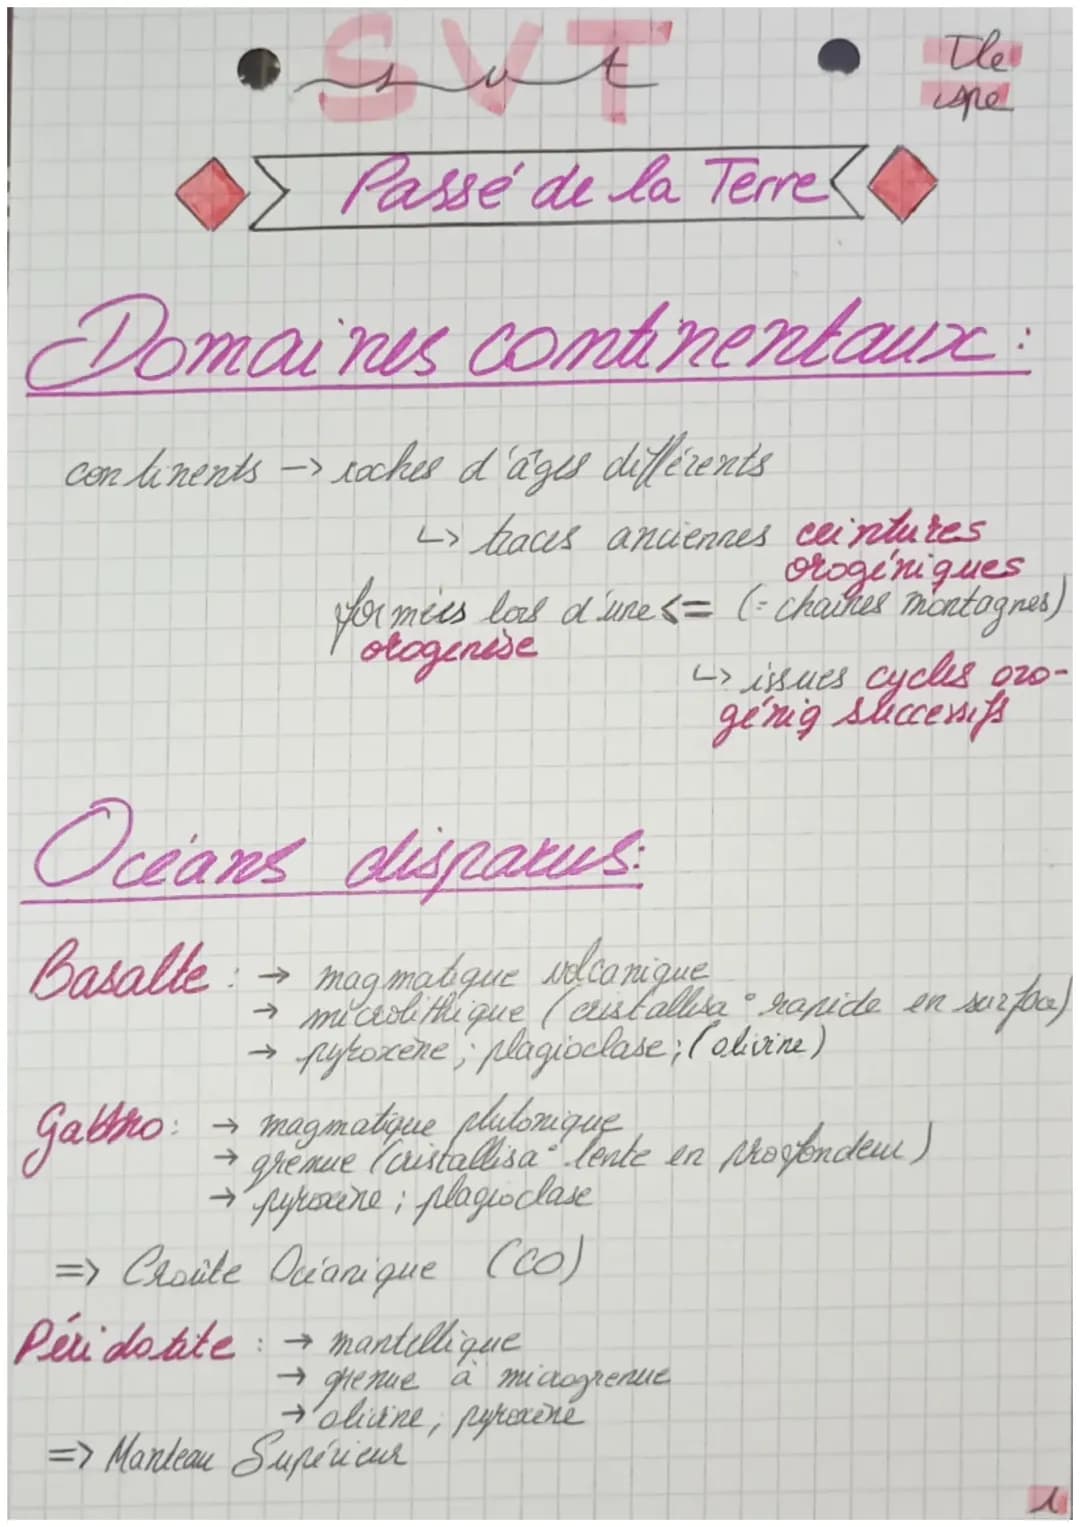 SVT
svt
Tle
spe
Passé de la Terre
Domaines continentaux :
continents -> roches d'âges différents
↳ traces anciennes ceintures
orogéniques
formées lors d'une <= (= chaînes montagnes)
orogenèse
↳ issues cycles oro-
géniq successifs
Océans disparus:
Basalte : → magmatique volcanique
→ microlithique (cristallisa° rapide en surface)
→ pyroxène ; plagioclase ; (olivine)
Gabbro : → magmatique plutonique
→ grenue (cristallisa° lente en profondeur)
→ pyroxène ; plagioclase
=> Croûte Océanique (CO)
Péridotite : → mantellique
→ grenue à microgrenue
→ olivine, pyroxène
=> Manteau Supérieur
1